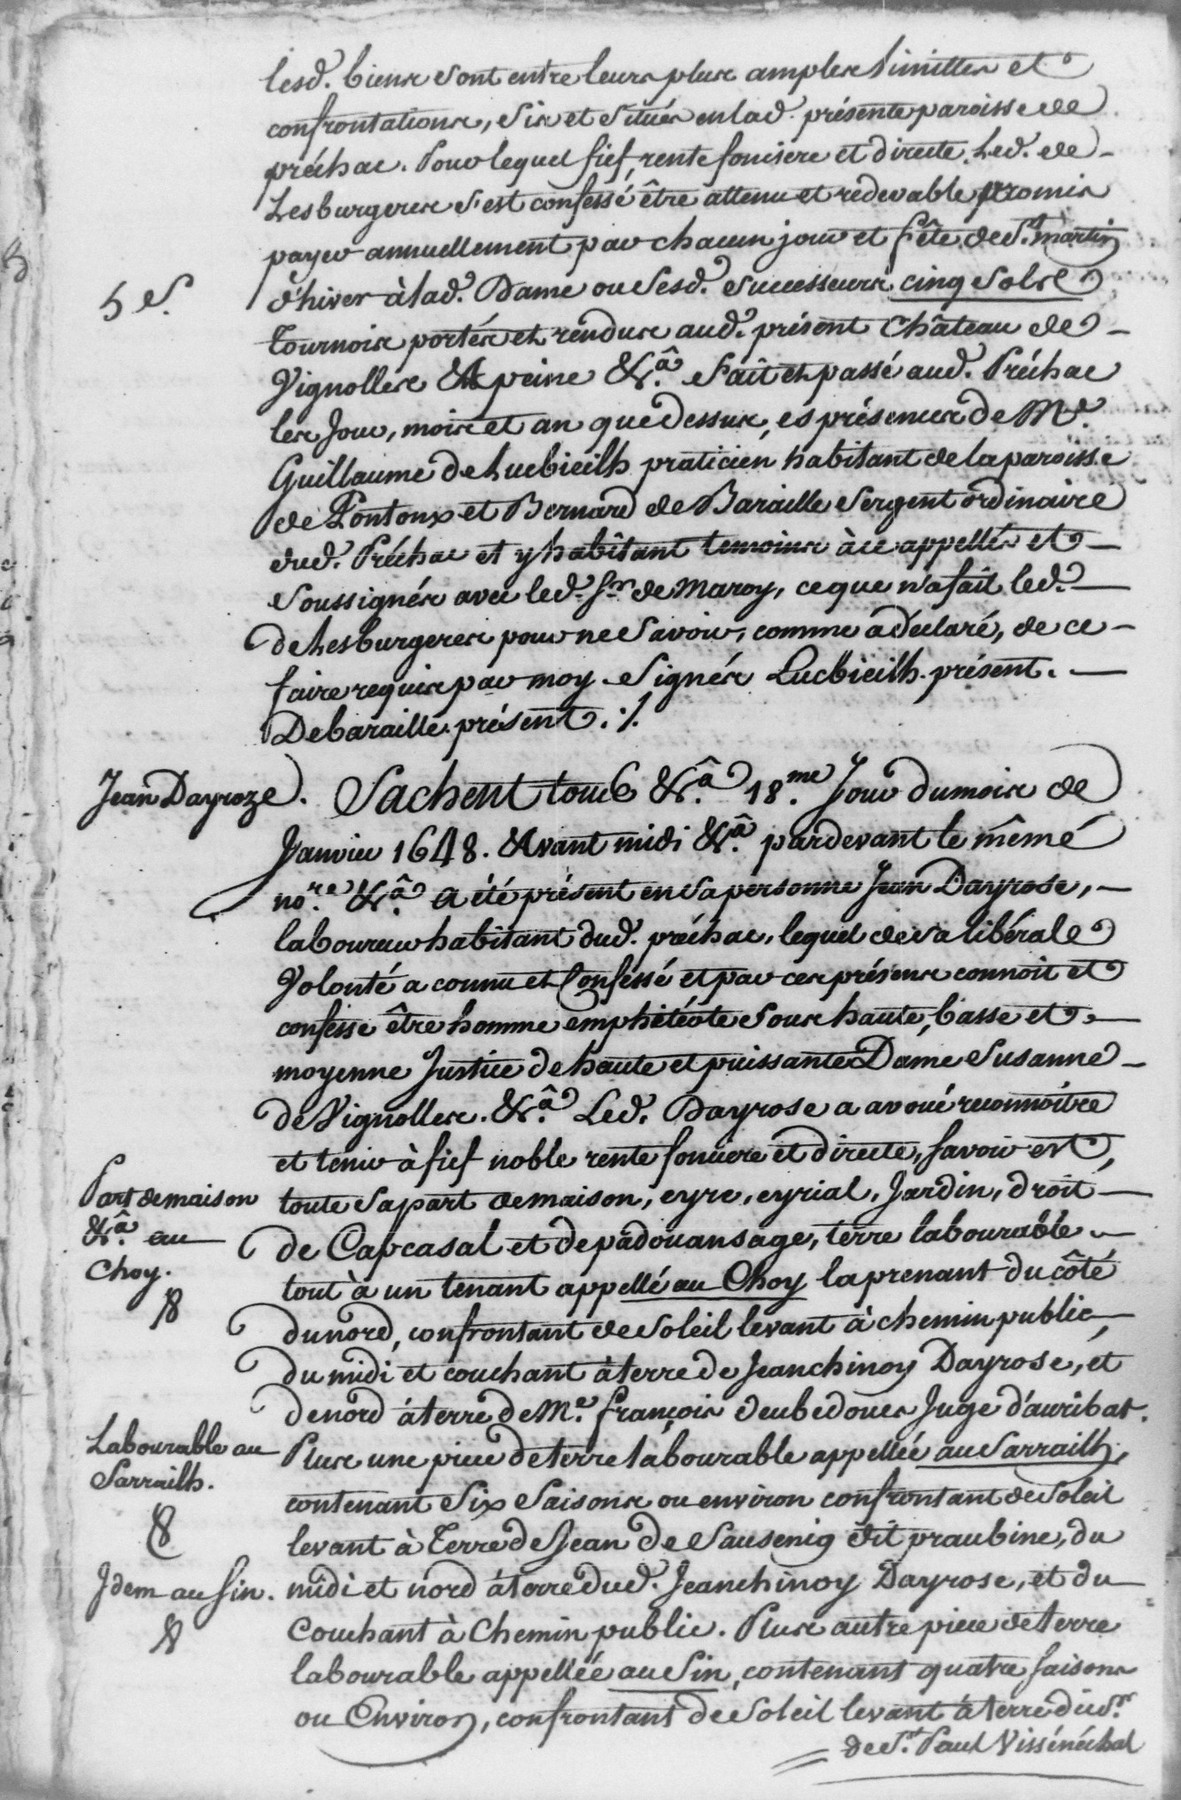 lesd. biens sont entre leurs plus amples limittes et
confrontations, sis et situés en lad. présente paroisse de
préchac. Pour lequel fief, rente fonciere et directe, Led. de
Lesburgeres s'est confessé être attenu et redevable promis
payer annuellement par chacun jour et fête de St. martin
5 s.
d'hiver à lad. Dame ou sesd. successeurs cinq sols
Tournois portés et rendus aud. présent Château de
Vignolles &A peine &.a Fait et passé aud. Préchac
les Jour, mois et an que dessus, es présences de Me.
Guillaume de Lucbieilh praticien habitant de la paroisse
de Pontonx et Bernard de Baraille Sergent ordinaire
dud. Préchac et y habitant temoins à ce appellés et
soussignés avec led. sr. de Maroy, ce que n'a fait led.
de Lesburgeres pour ne savoir, comme a déclaré, de ce
faire requis par moy. Signés Lucbieilh présent.
Debaraille présent ./.
Jean Dayroze. Sachent tous &.a 18.me Jour du mois de
Janvier 1648. Avant midi &.a pardevant le même
no.re &.a a été présent en sa personne Jean Dayrose,
laboureur habitant dud. préchac, lequel de sa libérale
Volonté a connu et Confessé et par ces présens connoit et
confesse être homme emphitéote sous haute, basse et
moyenne Justice de haute et puissante Dame Susanne
de Vignolles. &.a Led. Dayrose a avoué reconnoître
et tenir à fief noble rente fonciere et directe, savoir est,
Part de maison
&.a au
Choy.
toute sa part de maison, eyre, eyrial, Jardin, droit
de Capcasal et de padouansage, terre labourable
tout à un tenant appellé au Choy la prenant du côté
du nord, confrontant de soleil levant à chemin public,
du midi et couchant à terre de Jeanchinoy Dayrose, et
de nord à terre de Me. françois deubedoues Juge d'auribat.
Labourable au
Sarrailh.
Plus une piece de terre labourable appellée au Sarrailh,
contenant Six Saisons ou environ confrontant de soleil
levant à Terre de Jean de Sausenig dit praubine, du
Idem au sin.
midi et nord à terre dud. Jeanchinoy Dayrose, et du
Couchant à Chemin public. Plus autre piece de terre
labourable appellée au Sin, contenant quatre saisons
ou Environ, confrontant de soleil levant à terre du sr.
de St. Paul Vissénéchal